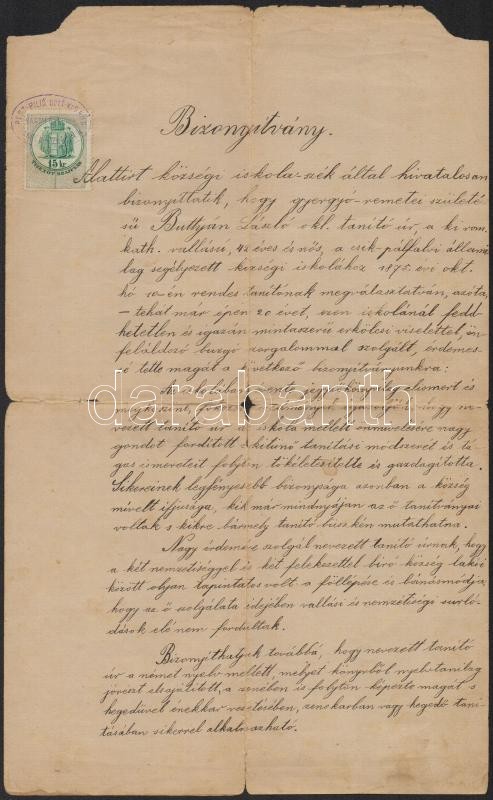 Bizonyítvány.
15 kr
Alattirt községi iskola-szék által hivatalosan
bizonyittatik, hogy gyergyó-remetei születé
sü Buttyán László okl. tanitó úr, a ki rom.
kath. vallású, 42 éves és nős, a csik-pálfalvi állami
lag segélyezett községi iskolához 1875 évi okt.
hó 10-én rendes tanítónak megválasztatván, azóta,
– tehát már épen 20 évet, ezen iskolánál fedd-
hetetlen és igazán mintaszerü erkölcsi viselettel, ön
feláldozó buzgó szorgalommal szolgált, érdemes-
sé tette magát a következő bizonyítványunkra:
darabanth
nevezett tanitó úr az iskola mellett önművelésére nagy
gondot forditott s kitünő tanítási módszerét és tá-
gas ismereteit folyton tökéletesítette és gazdagította.
Sikereinek legfényesebb bizonysága azonban a község
művelt ifjusága, kik már mindnyájan az ő tanitványai
voltak s kikre bármely tanitó büszkén mutathatna.
Nagy érdemére szolgál nevezett tanitó úrnak, hogy
a két nemzetiséggel és két felekezettel biró község lakói
között olyan tapintatos volt a föllépése és bánásmódja,
hogy az ő szolgálata idejében vallási és nemzetiségi surló-
dások elé nem fordultak.
Bizonyithatjuk továbbá, hogy nevezett tanitó
úr a német nyelv mellett, melyet könyvből nyelvtanilag
jórészt elsajátitott, a zenében is folyton képezte magát s
hegedüvel énekkar vezetésében, zenekarban vagy hegedű tani-
tásában sikerrel alkalmazható.